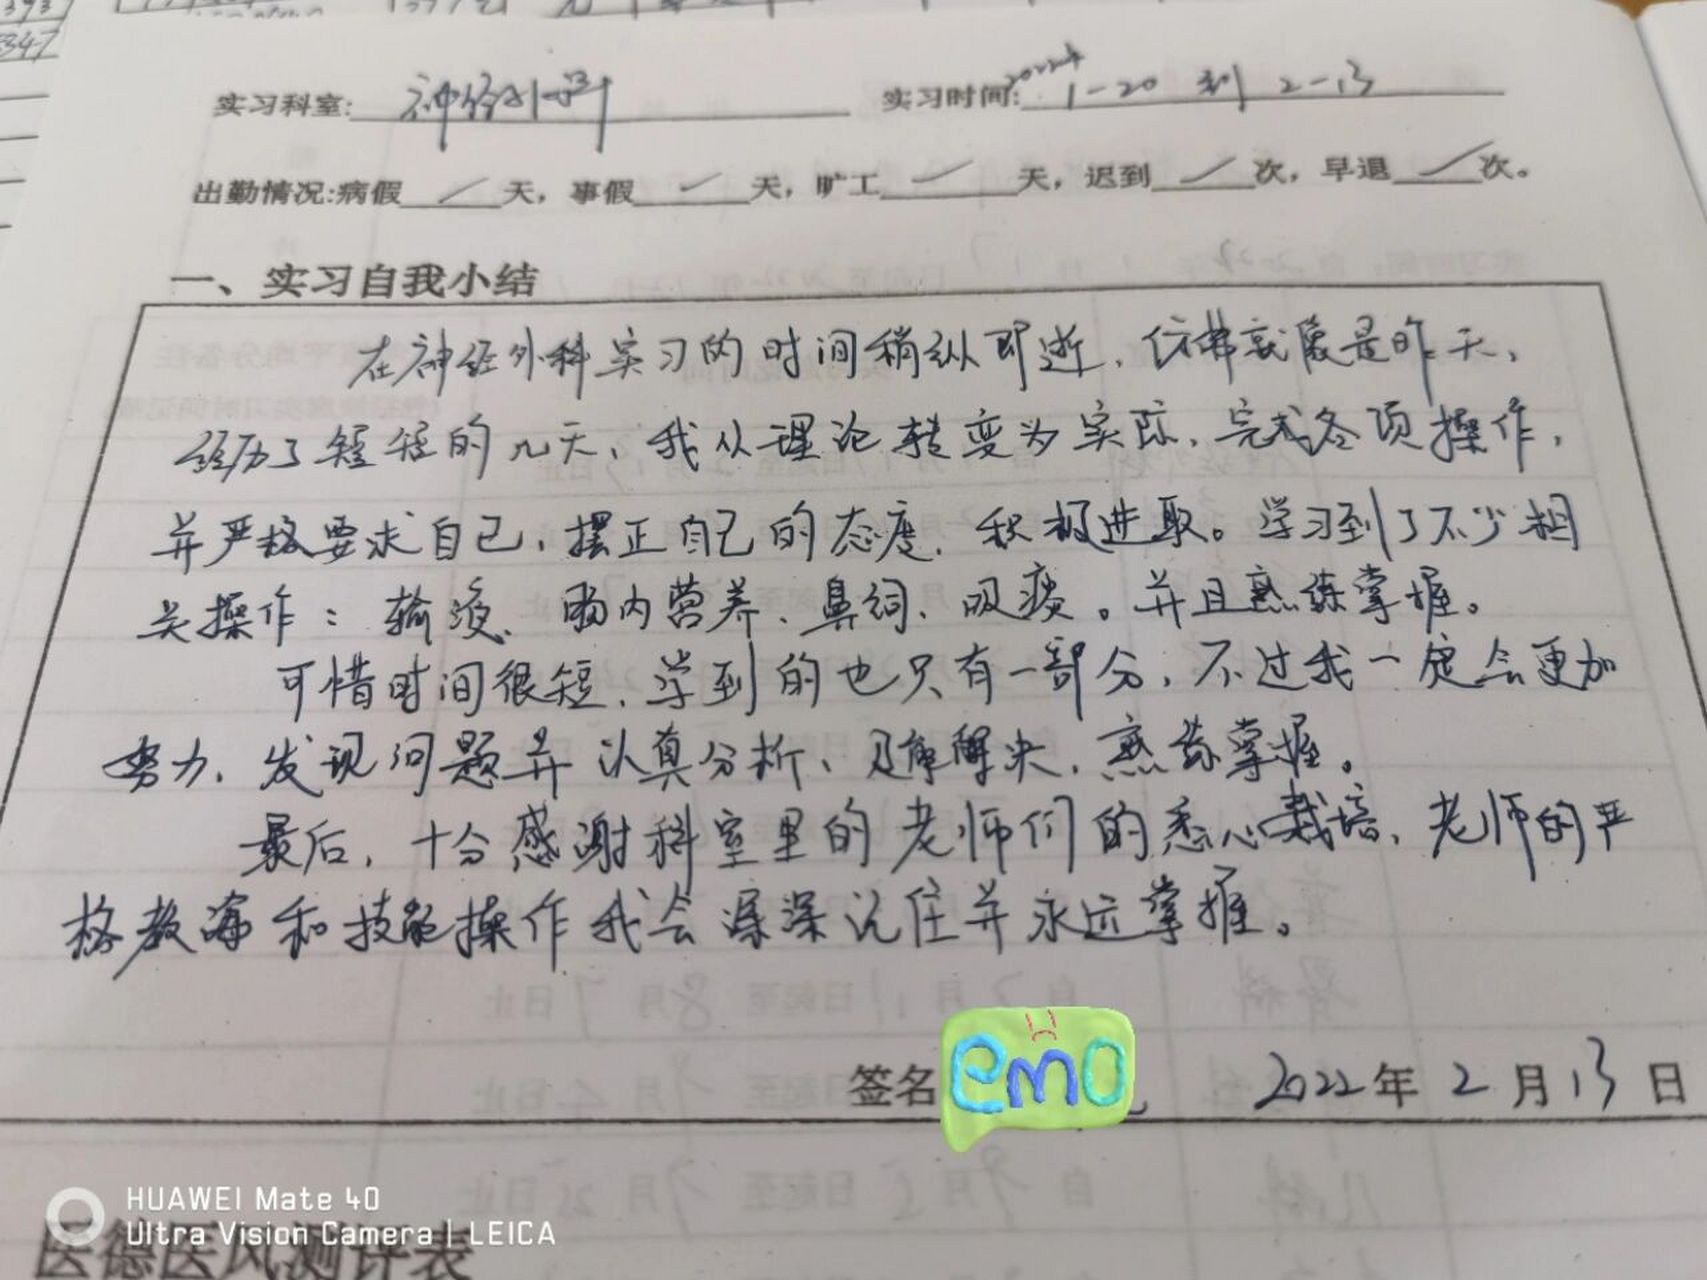 实习科室: 神经外科 实习时间: 2022年 1-20 到 2-13
出勤情况:病假 / 天，事假 / 天，旷工 / 天，迟到 / 次，早退 / 次。
一、实习自我小结
在神经外科实习的时间稍纵即逝，仿佛就像是昨天，
经历了短短的几天，我从理论转变为实际，完成各项操作，
并严格要求自己，摆正自己的态度，积极进取。学习到了不少相
关操作：输液、肠内营养、鼻饲、吸痰。并且熟练掌握。
可惜时间很短，学到的也只有一部分，不过我一定会更加
努力，发现问题并认真分析、理解解决，熟练掌握。
最后，十分感谢科室里的老师们的悉心栽培，老师的严
格教海和技能操作我会深深记住并永远掌握。
签名 emo 2022年 2 月 13 日
HUAWEI Mate 40
Ultra Vision Camera | LEICA
医德医风测评表